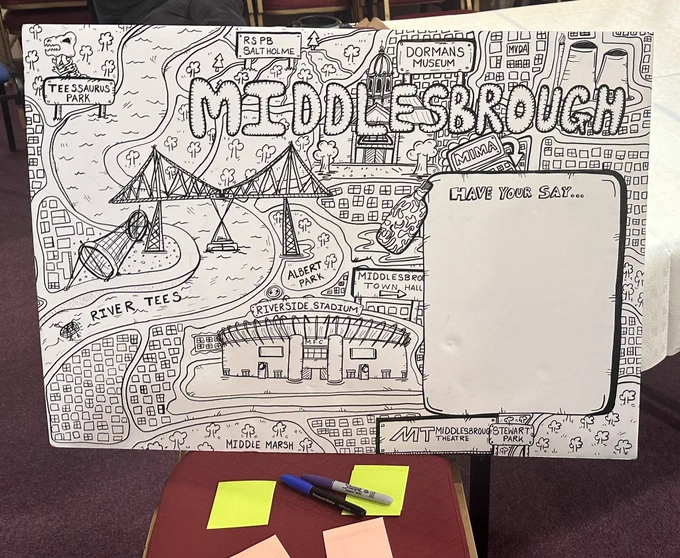 RSPB
SALTHOLME
DORMANS
MUSEUM
MYDA
TEESSAURUS
PARK
MIDDLESBROUGH
MIMA
HAVE YOUR SAY...
ALBERT
PARK
MIDDLESBRO
TOWN HALL
RIVER TEES
RIVERSIDE STADIUM
M.F.C
MIDDLE MARSH
MT MIDDLESBROUG
THEATRE
STEWART
PARK